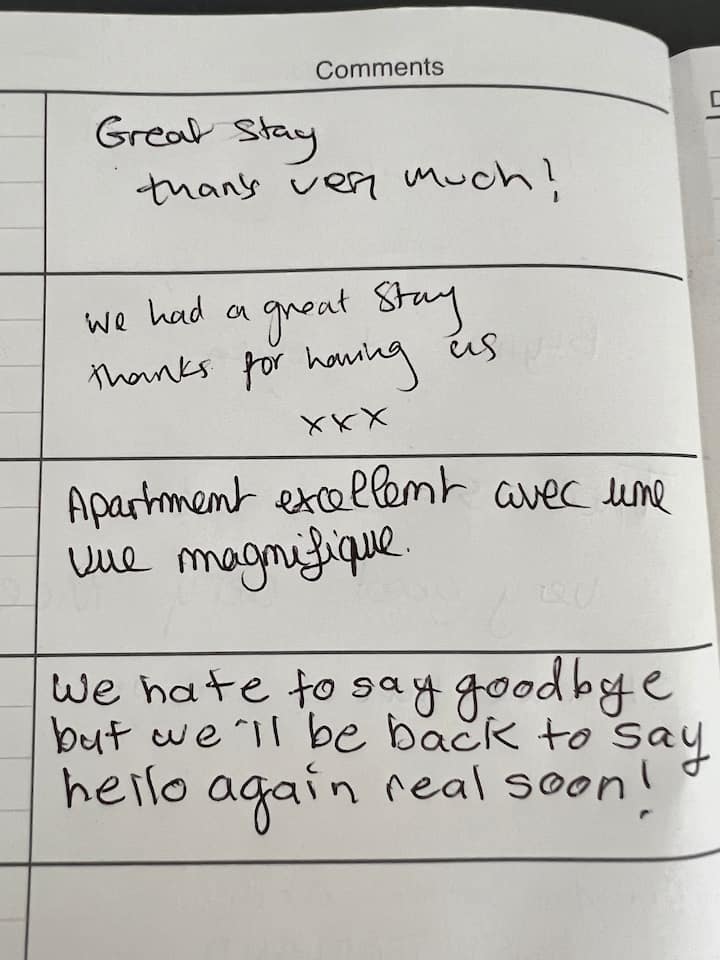 Comments
Great stay
thanks very much!
We had a great stay
thanks for having us
xxx
Apartment excellent avec une
vue magnifique.
We hate to say goodbye
but we'll be back to say
hello again real soon!